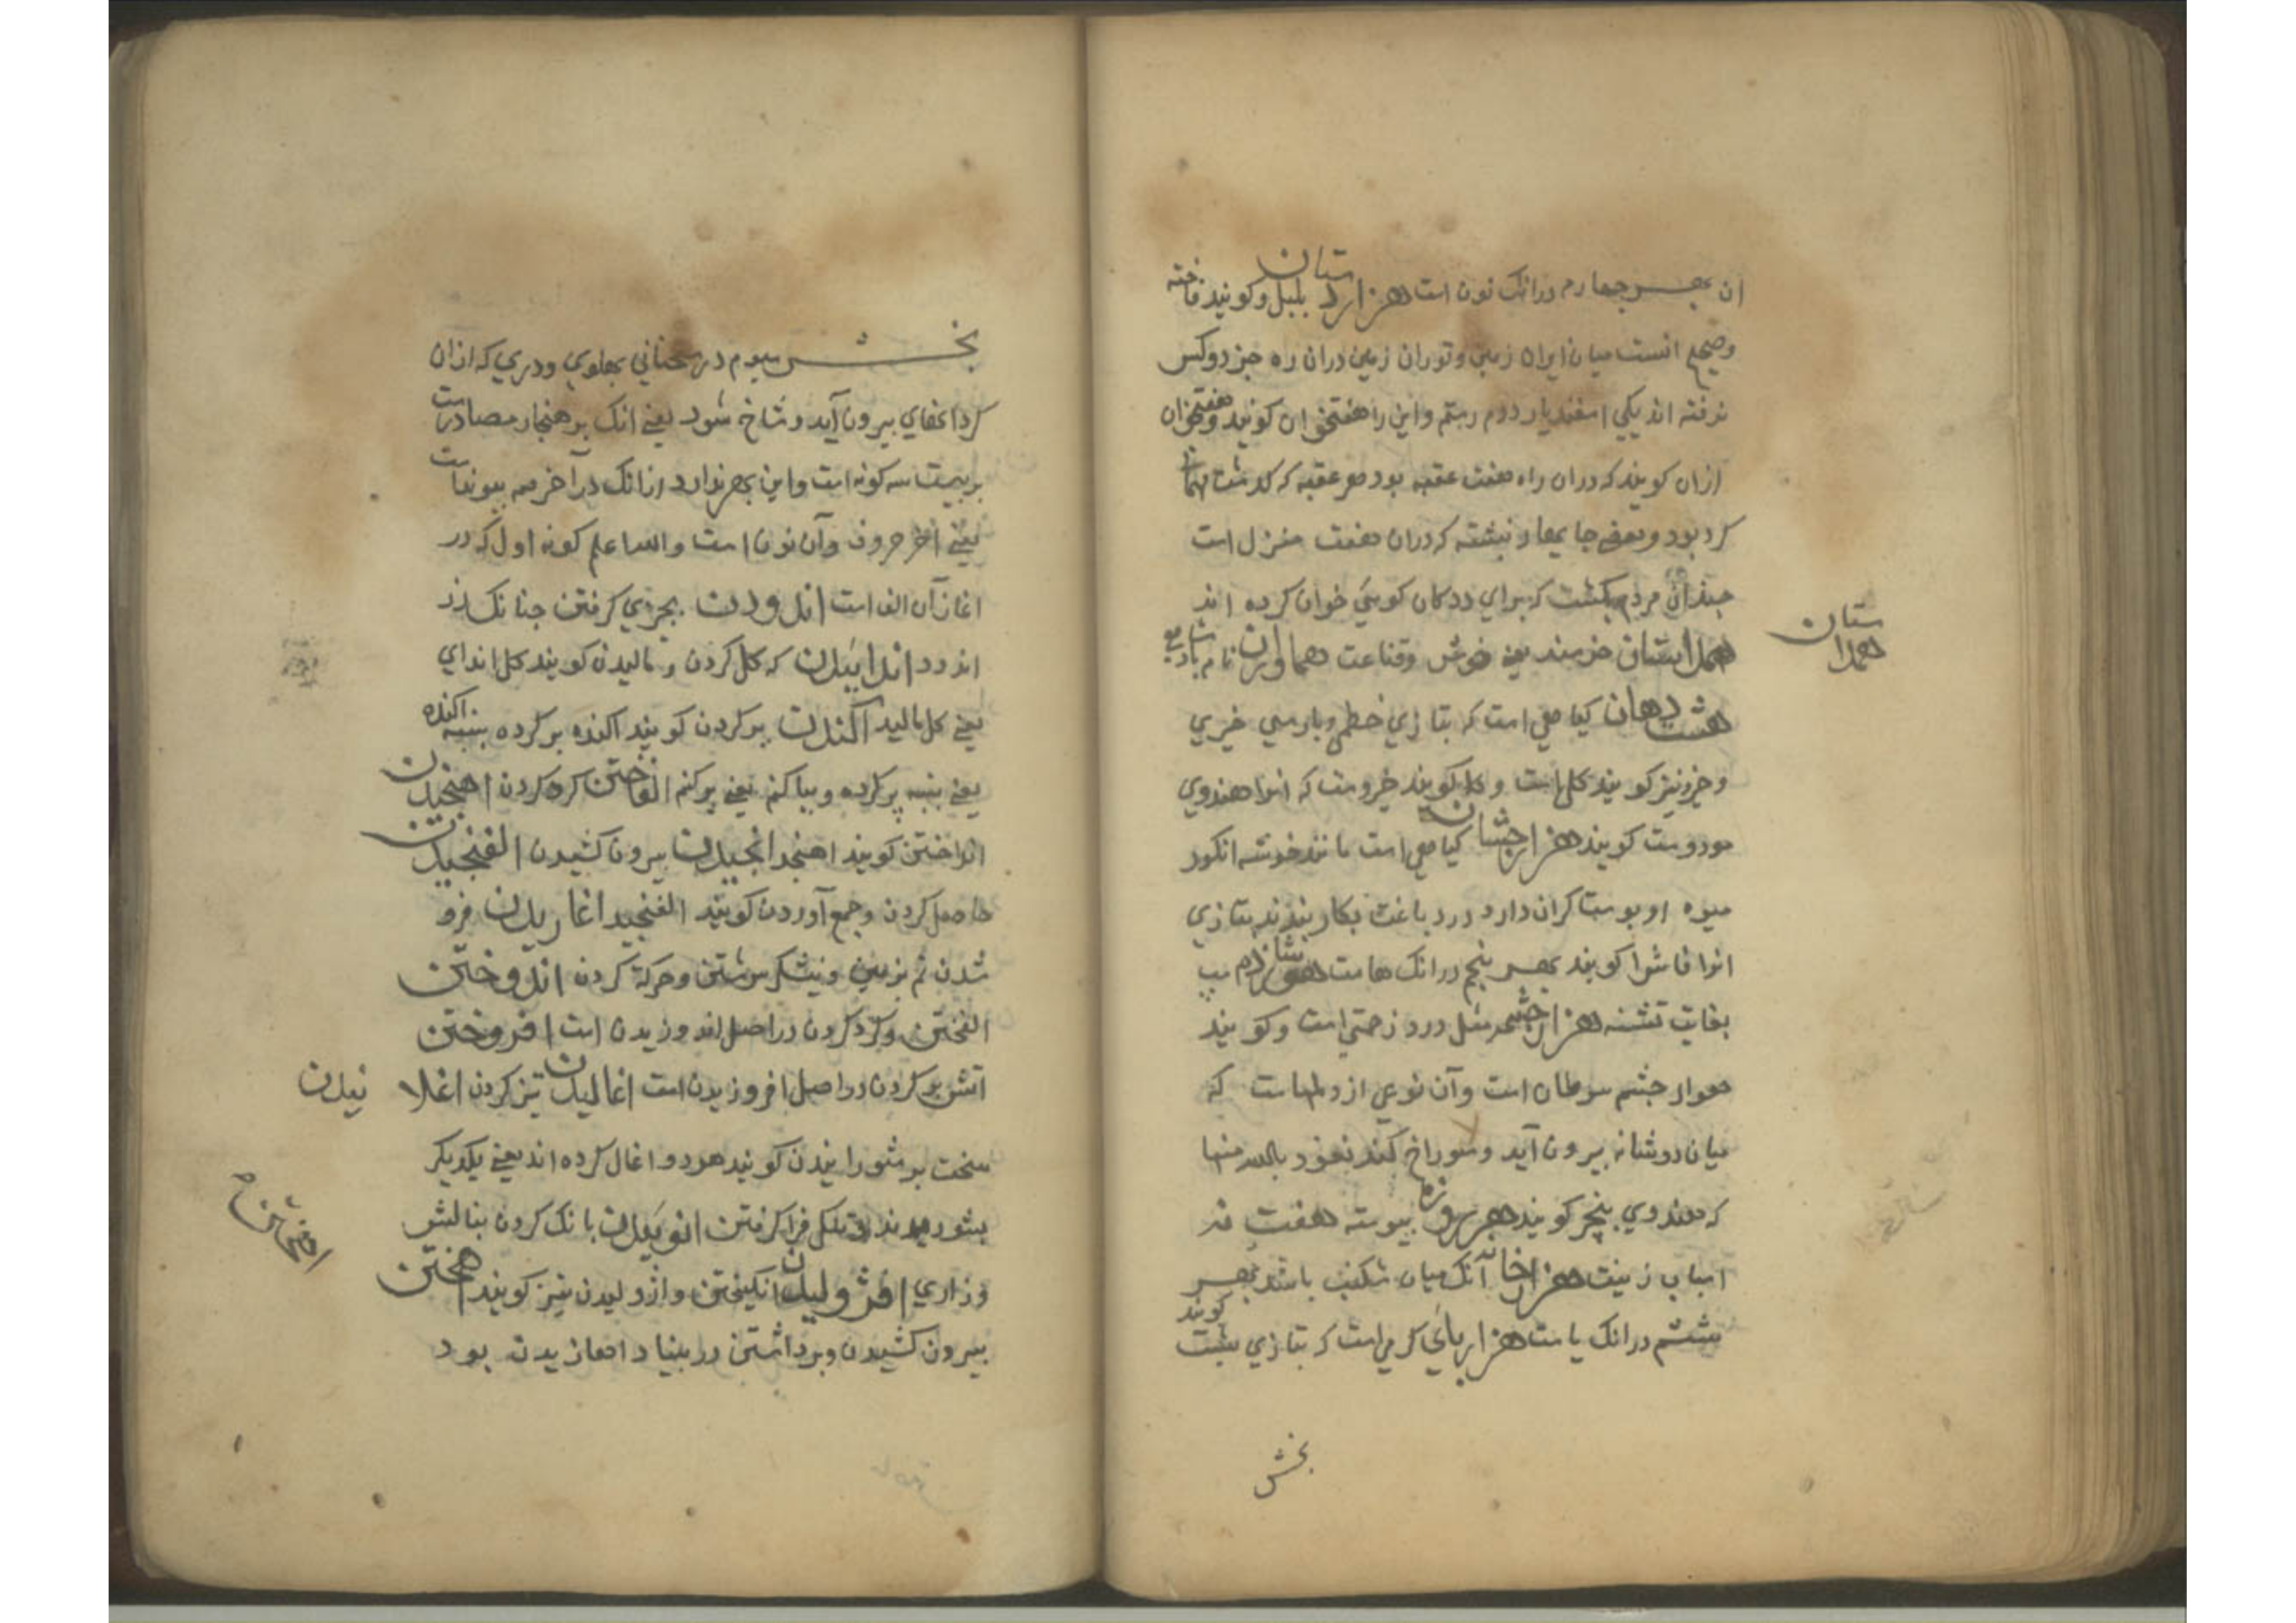 ان بهر چهارم درانک نون است هزاردستان بلبل و کویند فاخته
وصحیح انست میان ایران زمین و توران زمین دران ره جز دو کس
نرفته اند یکی اسفندیار دوم رستم و این را هفتخوان کویند و هفتخوان
ازان کویند که دران راه هفت عقبه بود هر عقبه که کدشت
کرد بود و بعضی جایها نبشته که دران هفت منزل است
چندان مردم بکشت که برای ددکان کویی خوان کرده اند
همداستان خرسند یعنی خوش و قناعت هماوران نام
هشت دهان کیاهی است که بتازی خطمی و پارسی خیری
و خیرو نیز کویند کلهاست و کویند خیروست که انرا هندوی
کویند هزارجشان کیاهی است مانند خوشه انکور
میوه او بوستا کران دارد در دباغت بکار بندند بتازی
انرا فاشرا کویند بهر پنجم درانک هاست
بغایت تشنه هزارچشمه مثل درد زحمتی است و کویند
چشم سرطان است و آن نوعی از دلهاست که
میان دو شانه بیرون آید و سوراخ کند نعوذ بالله منها
که هندوی کویند پیوسته هفت
اسباب زینت هزارخانه آنک میان شکنب باشد بهر
ششم درانک یاست هزارپای کرمی است که بتازی شبث کویند
همداستان
بخش
بخش سیوم در سخنانی پهلوی و دری که ازان
کردانهای بیرون آید و شاخ شود یعنی انک بر هنجار مصادرست
بریست سه کونه است و این بهر ندارد ازانک در آخر همه پیونداست
یعنی آخر حروف و آن نون است والله اعلم کونه اول که در
اغاز آن الف است اندودن بچیزی کرفتن چنانک زر
اندود اندائیدن که کل کردن و مالیدن کویند کل اندای
یعنی کل مالید آکندن پر کردن کویند اکنده پر کرده پنبه اکنده
یعنی پنبه پر کرده و بیاکنم یعنی پر کنم الفاختن کرد کردن اهنجیدن
انداختن کویند اهنجد انجیدن بیرون کشیدن الفنجیدن
حاصل کردن و جمع آوردن کویند الفنجید اغاریدن فرو
شدن نم بزمین و نیشکر سرشتن و حرکة کردن اندوختن
الفختن و کرد کردن در اصل اندوزیدن است افروختن
اتش بر کردن در اصل افروزیدن است اغالیدن تیز کردن اغلا
نیدن
سخت بر شورانیدن کویند هر دو اغال کرده اند یعنی یکدیکر
فرا کرفتن انوئیدن بانک کردن بنالش
و زاری افژولیدن انکیختن و اژولیدن نیز کویند اهختن
بیرون کشیدن و برداشتن در بنیاد اهازیدن بود